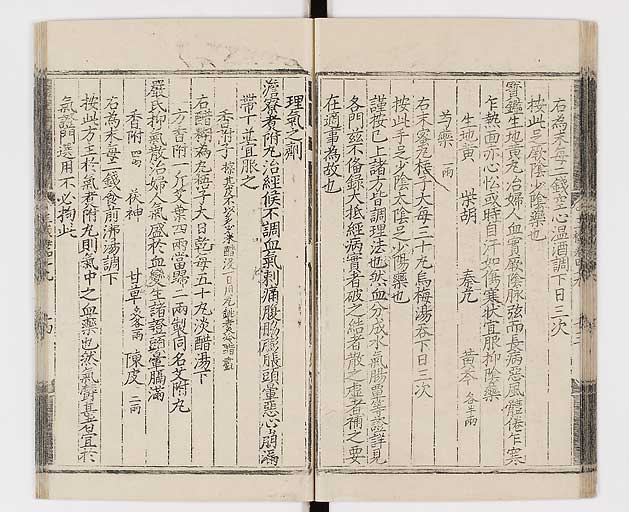 右為末每二錢空心溫酒調下日三次
按此足厥陰少陰藥也
寶鑑生地黃丸治婦人血實厥陰脉弦而長病惡風體倦乍寒
乍熱面赤心忪或時自汗如傷寒狀宜服抑陰藥
生地黃 柴胡 秦艽 黃芩 各半兩
芍藥 一兩
右末蜜丸梧子大每三十丸烏梅湯吞下日三次
按此手足少陰太陰足少陽藥也
謹按已上諸方皆調理法也然血分成水氣腸覃等證詳見
各門茲不俻錄大抵經病實者破之結者散之虛者補之要
在適事為故也
理氣之劑
澹寮煮附丸治經候不調血氣刺痛腹脇膨脹頭暈惡心崩漏
帶下並宜服之
香附子
右醋糊為丸梧子大日乾每五十丸淡醋湯下
一方香附一斤艾葉四兩當歸二兩製同名艾附丸
嚴氏抑氣散治婦人氣盛於血變生諸證頭暈膈滿
香附 四兩 茯神 甘草 各一兩 陳皮 二兩
右為末每二錢食前沸湯調下
按此方主於氣煮附丸則氣中之血藥也然氣鬱甚者宜於
氣證門選用不必拘此